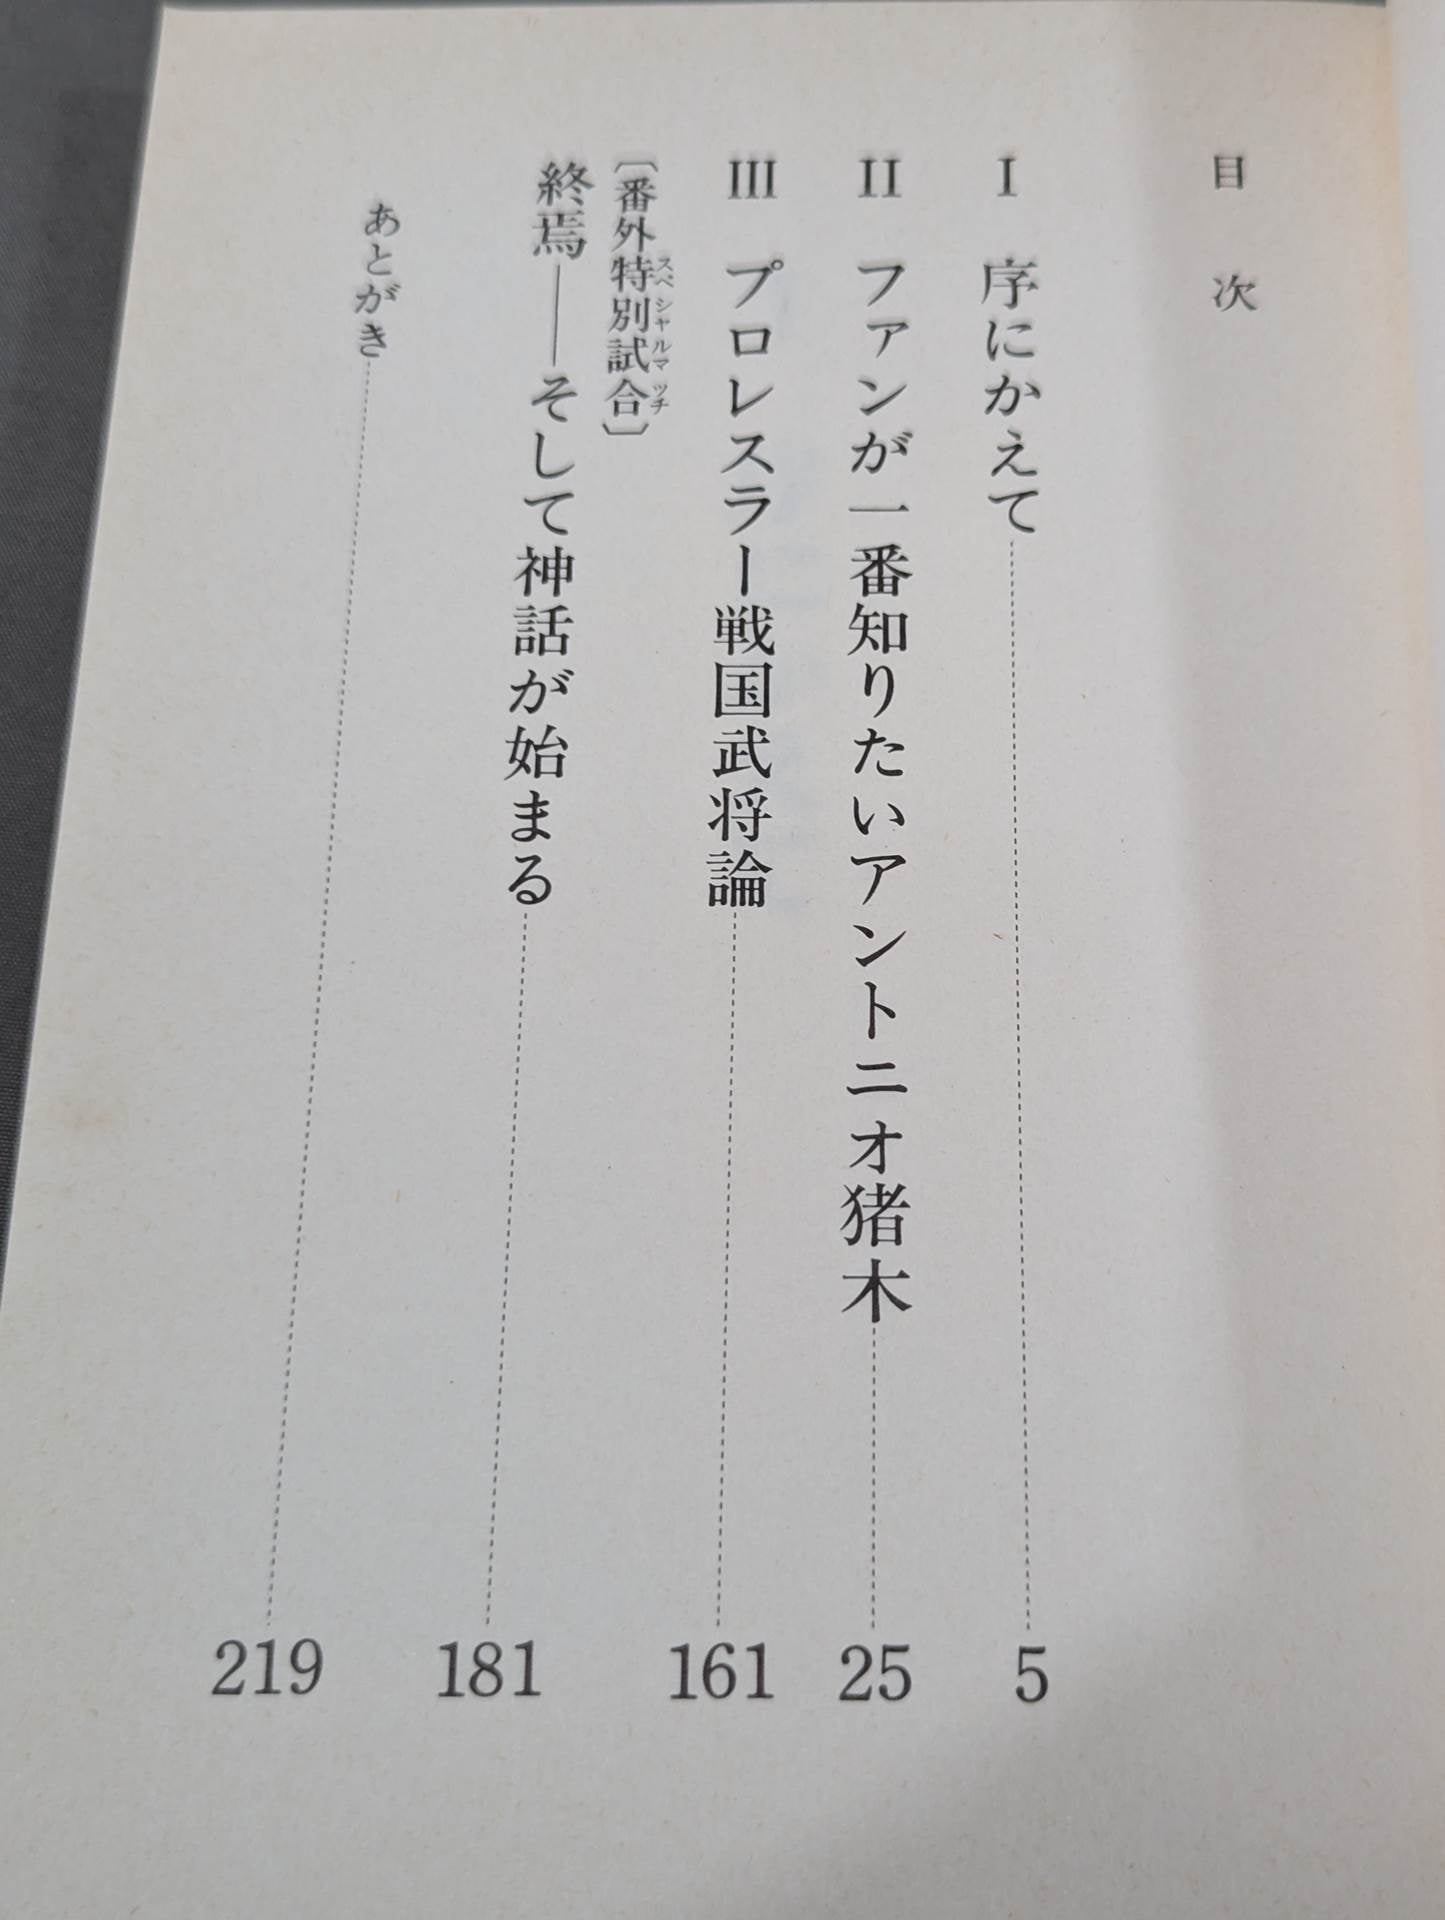 目 次
I 序にかえて 5
II ファンが一番知りたいアントニオ猪木 25
III プロレスラー戦国武将論 161
〔番外特別試合〕
スペシャルマッチ
終焉――そして神話が始まる 181
あとがき 219